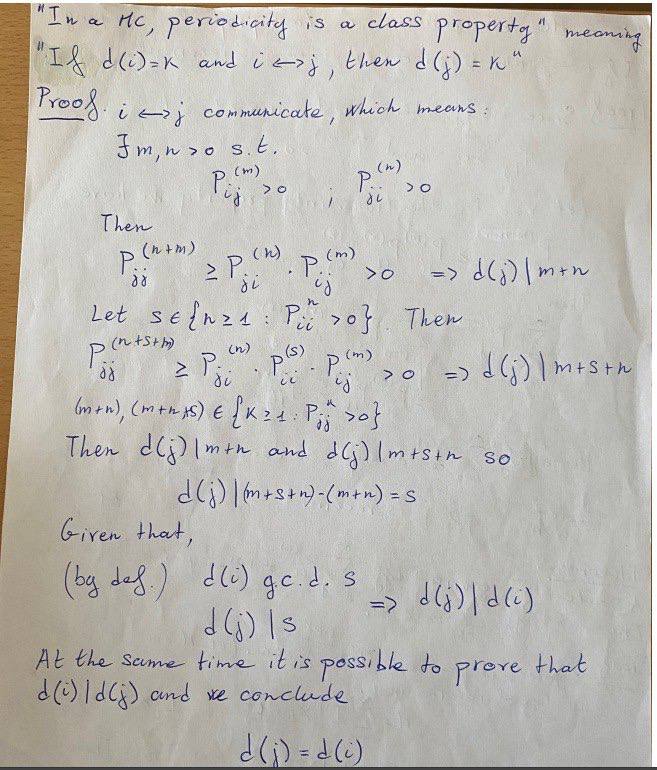 "In a MC, periodicity is a class property" meaning
"If d(i)=K and i ↔ j, then d(j) = K"
Proof. i ↔ j communicate, which means:
∃ m, n > 0 s.t.
P_{ij}^{(m)} > 0 ; P_{ji}^{(n)} > 0
Then
P_{jj}^{(n+m)} ≥ P_{ji}^{(n)} · P_{ij}^{(m)} > 0 => d(j) | m+n
Let s ∈ {n ≥ 1 : P_{ii}^{n} > 0}. Then
P_{jj}^{(n+s+m)} ≥ P_{ji}^{(n)} · P_{ii}^{(s)} · P_{ij}^{(m)} > 0 => d(j) | m+s+n
(m+n), (m+n+s) ∈ {K ≥ 1 : P_{jj}^{K} > 0}
Then d(j) | m+n and d(j) | m+s+n so
d(j) | (m+s+n)-(m+n) = s
Given that,
(by def.) d(i) g.c.d. s
d(j) | s => d(j) | d(i)
At the same time it is possible to prove that
d(i) | d(j) and we conclude
d(j) = d(i)